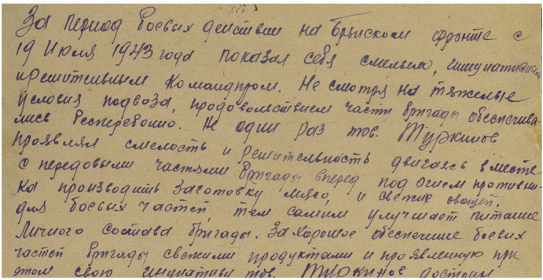 За период боевых действий на Брянском фронте с
19 июля 1943 года показал себя смелым, инициативным
и решительным командиром. Не смотря на тяжелые
условия подвоза, продовольствием части бригады обеспечива-
лись бесперебойно. Не один раз тов. Туркинов
проявляя смелость и решительность двигаясь вместе
с передовыми частями бригады вперед под огнем противни-
ка производить заготовку мяса, и свежих овощей.
для боевых частей, тем самим улучшает питание
личного состава бригады. За хорошое обеспечение боевых
частей бригады свежими продуктами и проявленную при
этом свою инициативу тов. достоин